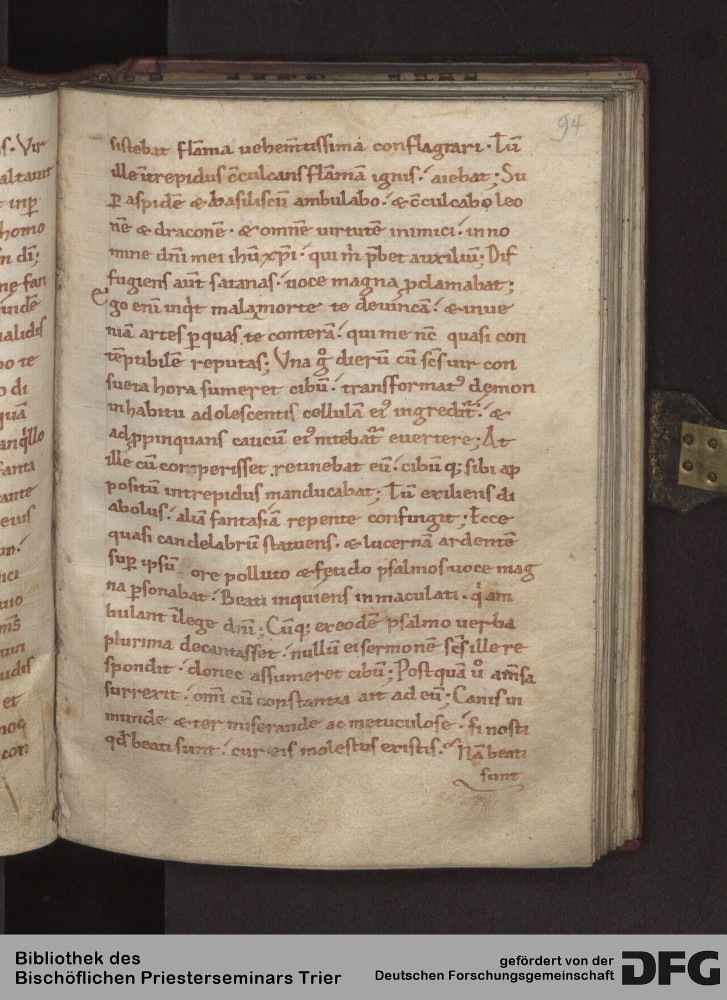 94
sistebat flāma uehem̄tissima conflagrari· Tū
ille īrepidus c̄culcans flāmā ignis·́ aiebat; Su
ꝑ aspidē & basiliscū ambulabo·́ & c̄culcabo leo
nē & draconē· & omnē uirtutē inimici·́ in no
mine dn̄i mei ih̄u xp̄i·́ qui m̄ p̄bet auxiliū; Dif
fugiens aūt satanas·́ uoce magna ꝓclamabat;
Ego enī inq̄t mala morte te deuincā·́ & inue
niā artes ꝑ quas te conterā·́ qui me nc̄ quasi con
tēptibilē reputas; Vna gͦ dierū cū sc̄s uir con
sueta hora sumeret cibū·́ transformatꝰ demon
in habitu adolescentis cellulā eiꝰ ingredit̄·́ &
adꝓpinquans caucū eiꝰ nitebat̄ euertere; At
ille cū comperisset retinebat eū·́ cibūq; sibi ap
positū intrepidus manducabat; Tū exiliens di
abolus·́ aliā fantasiā repente confingit; Ecce
quasi candelabrū statuens· & lucernā ardentē
suꝑ ipsū ore polluto & fetido psalmos uoce mag
na ꝑsonabat·́ Beati inquiens inmaculati· qͥ am
bulant ī lege dn̄i; Cūq; ex eodē psalmo uerba
plurima decantasset·́ nullū ei sermonē sc̄s ille re
spondit·́ donec assumeret cibū; Postquā uͦ a m̄sa
surrexit·́ om̄i cū constantia ait ad eū; Canis in
munde & ter miserande ac metuculose·́ si nosti
qd̄ beati sunt·́ cur eis molestus existis· Nā beati
sunt
Bibliothek des
Bischöflichen Priesterseminars Trier
gefördert von der
Deutschen Forschungsgemeinschaft
DFG